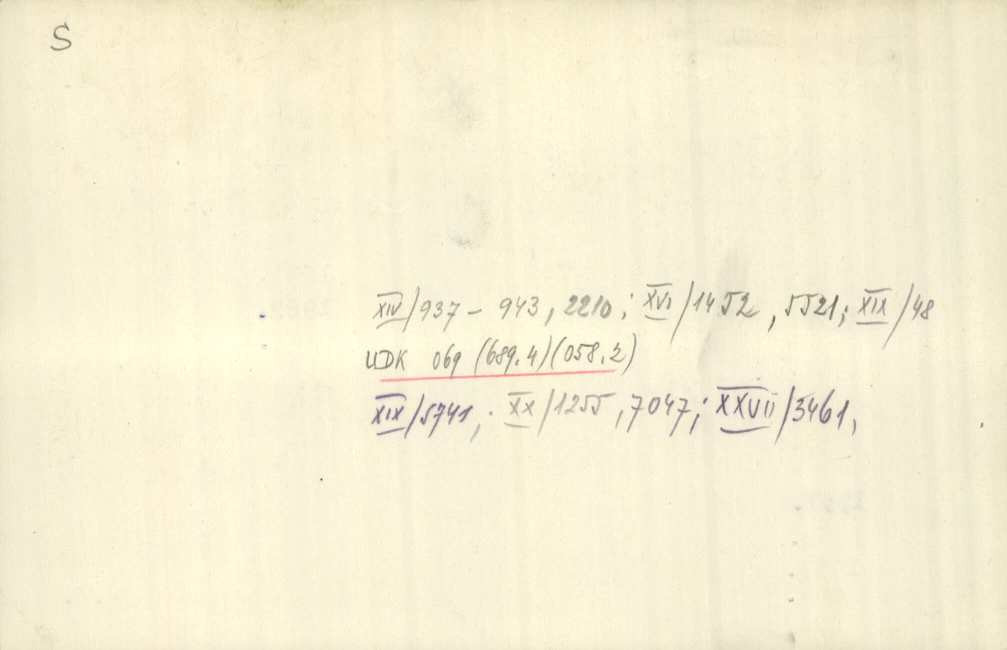 S
XIV/937 - 943, 2210; XVI/1452, 5521; XIX/48
UDK 069 (689.4)(058.2)
XIX/5741; XX/1255, 7047; XXVII/3461,